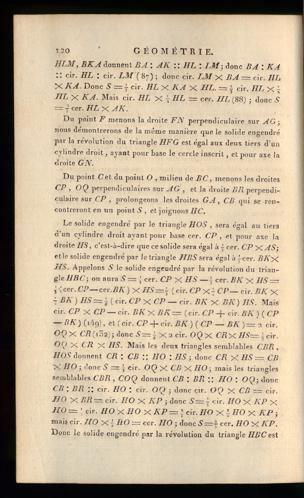 120 GÉOMÉTRIE.
HLM, BKA donnent BA : AK :: HL : LM ; donc BA : KA
:: cir. HL : cir. LM (87) ; donc cir. LM × BA = cir. HL
× KA. Donc S = cir. HL × KA × HL = cir. HL ×
HL × KA. Mais cir. HL × ½ HL = cer. HL (88) ; donc S
= cer. HL × AK.
Du point F menons la droite FN perpendiculaire sur AG ;
nous démontrerons de la même manière que le solide engendré
par la révolution du triangle HFG est égal aux deux tiers d'un
cylindre droit, ayant pour base le cercle inscrit, et pour axe la
droite GN.
Du point C et du point O, milieu de BC, menons les droites
CP, OQ perpendiculaires sur AG, et la droite BR perpendi-
culaire sur CP, prolongeons les droites GA, CB qui se ren-
contreront en un point S, et joignons HC.
Le solide engendré par le triangle HOS, sera égal au tiers
d'un cylindre droit ayant pour base cer. CP, et pour axe la
droite HS, c'est-à-dire que ce solide sera égal à ⅓ cer. CP × AS;
et le solide engendré par le triangle HBS sera égal à ⅓ cer. BK ×
HS. Appelons S le solide engendré par la révolution du trian-
gle HBC ; on aura S = ⅓ cer. CP × HS — ⅓ cer. BK × HS =
⅓ (cer. CP — cer. BK) × HS = ⅓ (cir. CP × ½ CP — cir. BK ×
½ BK) HS = (cir. CP × CP — cir. BK × BK) HS. Mais
cir. CP × CP — cir. BK × BK = (cir. CP + cir. BK) (CP
— BK) et (cir. CP + cir. BK) (CP — BK) = 2 cir.
OQ × CR (132) ; donc S = × 2 cir. OQ × CR × HS = cir.
OQ × CR × HS. Mais les deux triangles semblables CBR,
HOS donnent CR : CB :: HO : HS ; donc CR × HS = CB
× HO ; donc S = cir. OQ × CB × HO ; mais les triangles
semblables CBR, COQ donnent CB : BR :: HO : OQ ; donc
CB : BR :: cir. HO : cir. OQ ; donc cir. OQ × CB = cir.
HO × BR = cir. HO × KP ; donc S = cir. HO × KP ×
HO = cir. HO × HO × KP = cir. HO × HO × KP ;
mais cir. HO × ½ HO = cer. HO ; donc S = cer. HO × KP.
Donc le solide engendré par la révolution du triangle HBC est